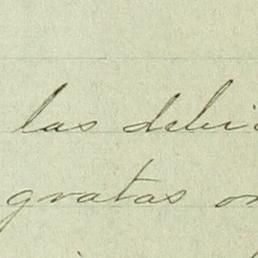 las debi
gratas